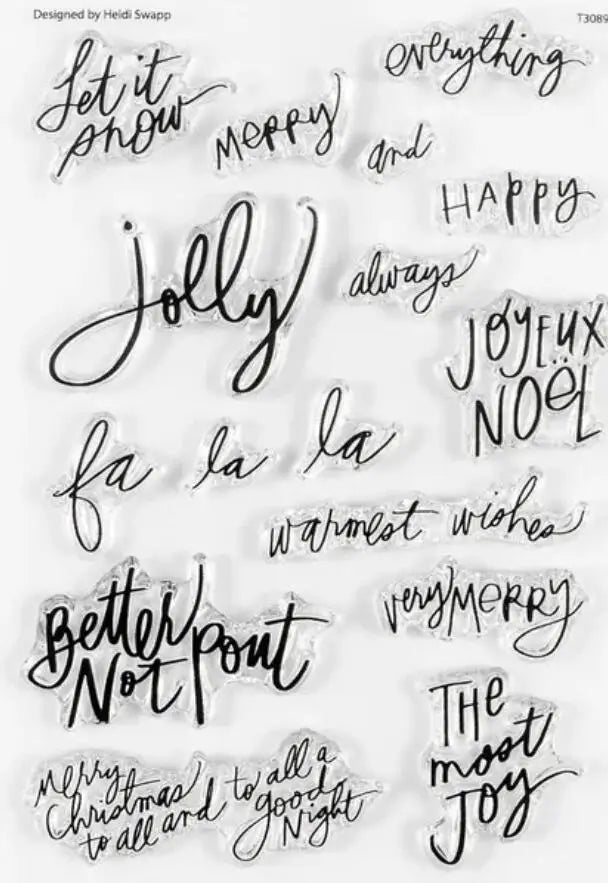 Designed by Heidi Swapp
T3089
Let it
snow
everything
MERRY
and
HAPPY
jolly
always
JOYEUX
NOËL
fa la la
warmest wishes
Better
Not pout
very MERRY
THe
most
Joy
Merry
Christmas
to all and
to all a
good
Night